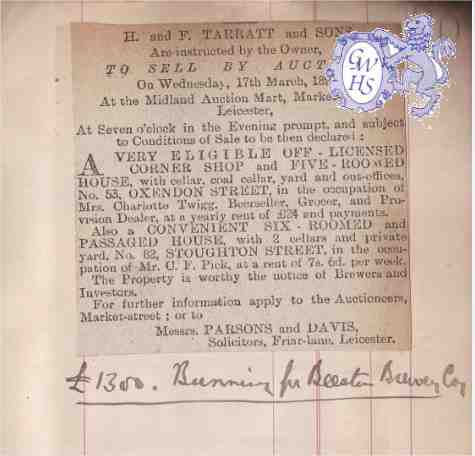 H. and F. TARRATT and SONS
Are instructed by the Owner,
TO SELL BY AUCT
On Wednesday, 17th March, 18
At the Midland Auction Mart, Marke
Leicester,
At Seven o'clock in the Evening prompt, and subject
to Conditions of Sale to be then declared :
A VERY ELIGIBLE OFF-LICENSED
CORNER SHOP and FIVE-ROOMED
HOUSE, with cellar, coal cellar, yard and out-offices,
No. 53, OXENDON STREET, in the occupation of
Mrs. Charlotte Twigg, Beerseller, Grocer, and Pro-
vision Dealer, at a yearly rent of £24 and payments.
Also a CONVENIENT SIX-ROOMED and
PASSAGED HOUSE, with 2 cellars and private
yard, No. 82, STOUGHTON STREET, in the occu-
pation of Mr. C. F. Pick, at a rent of 7s. 6d. per week.
The Property is worthy the notice of Brewers and
Investors.
For further information apply to the Auctioneers,
Market-street ; or to
Messrs. PARSONS and DAVIS,
Solicitors, Friar-lane, Leicester.
£1300. Bunning for Beeston Brewery Coy
GWHS